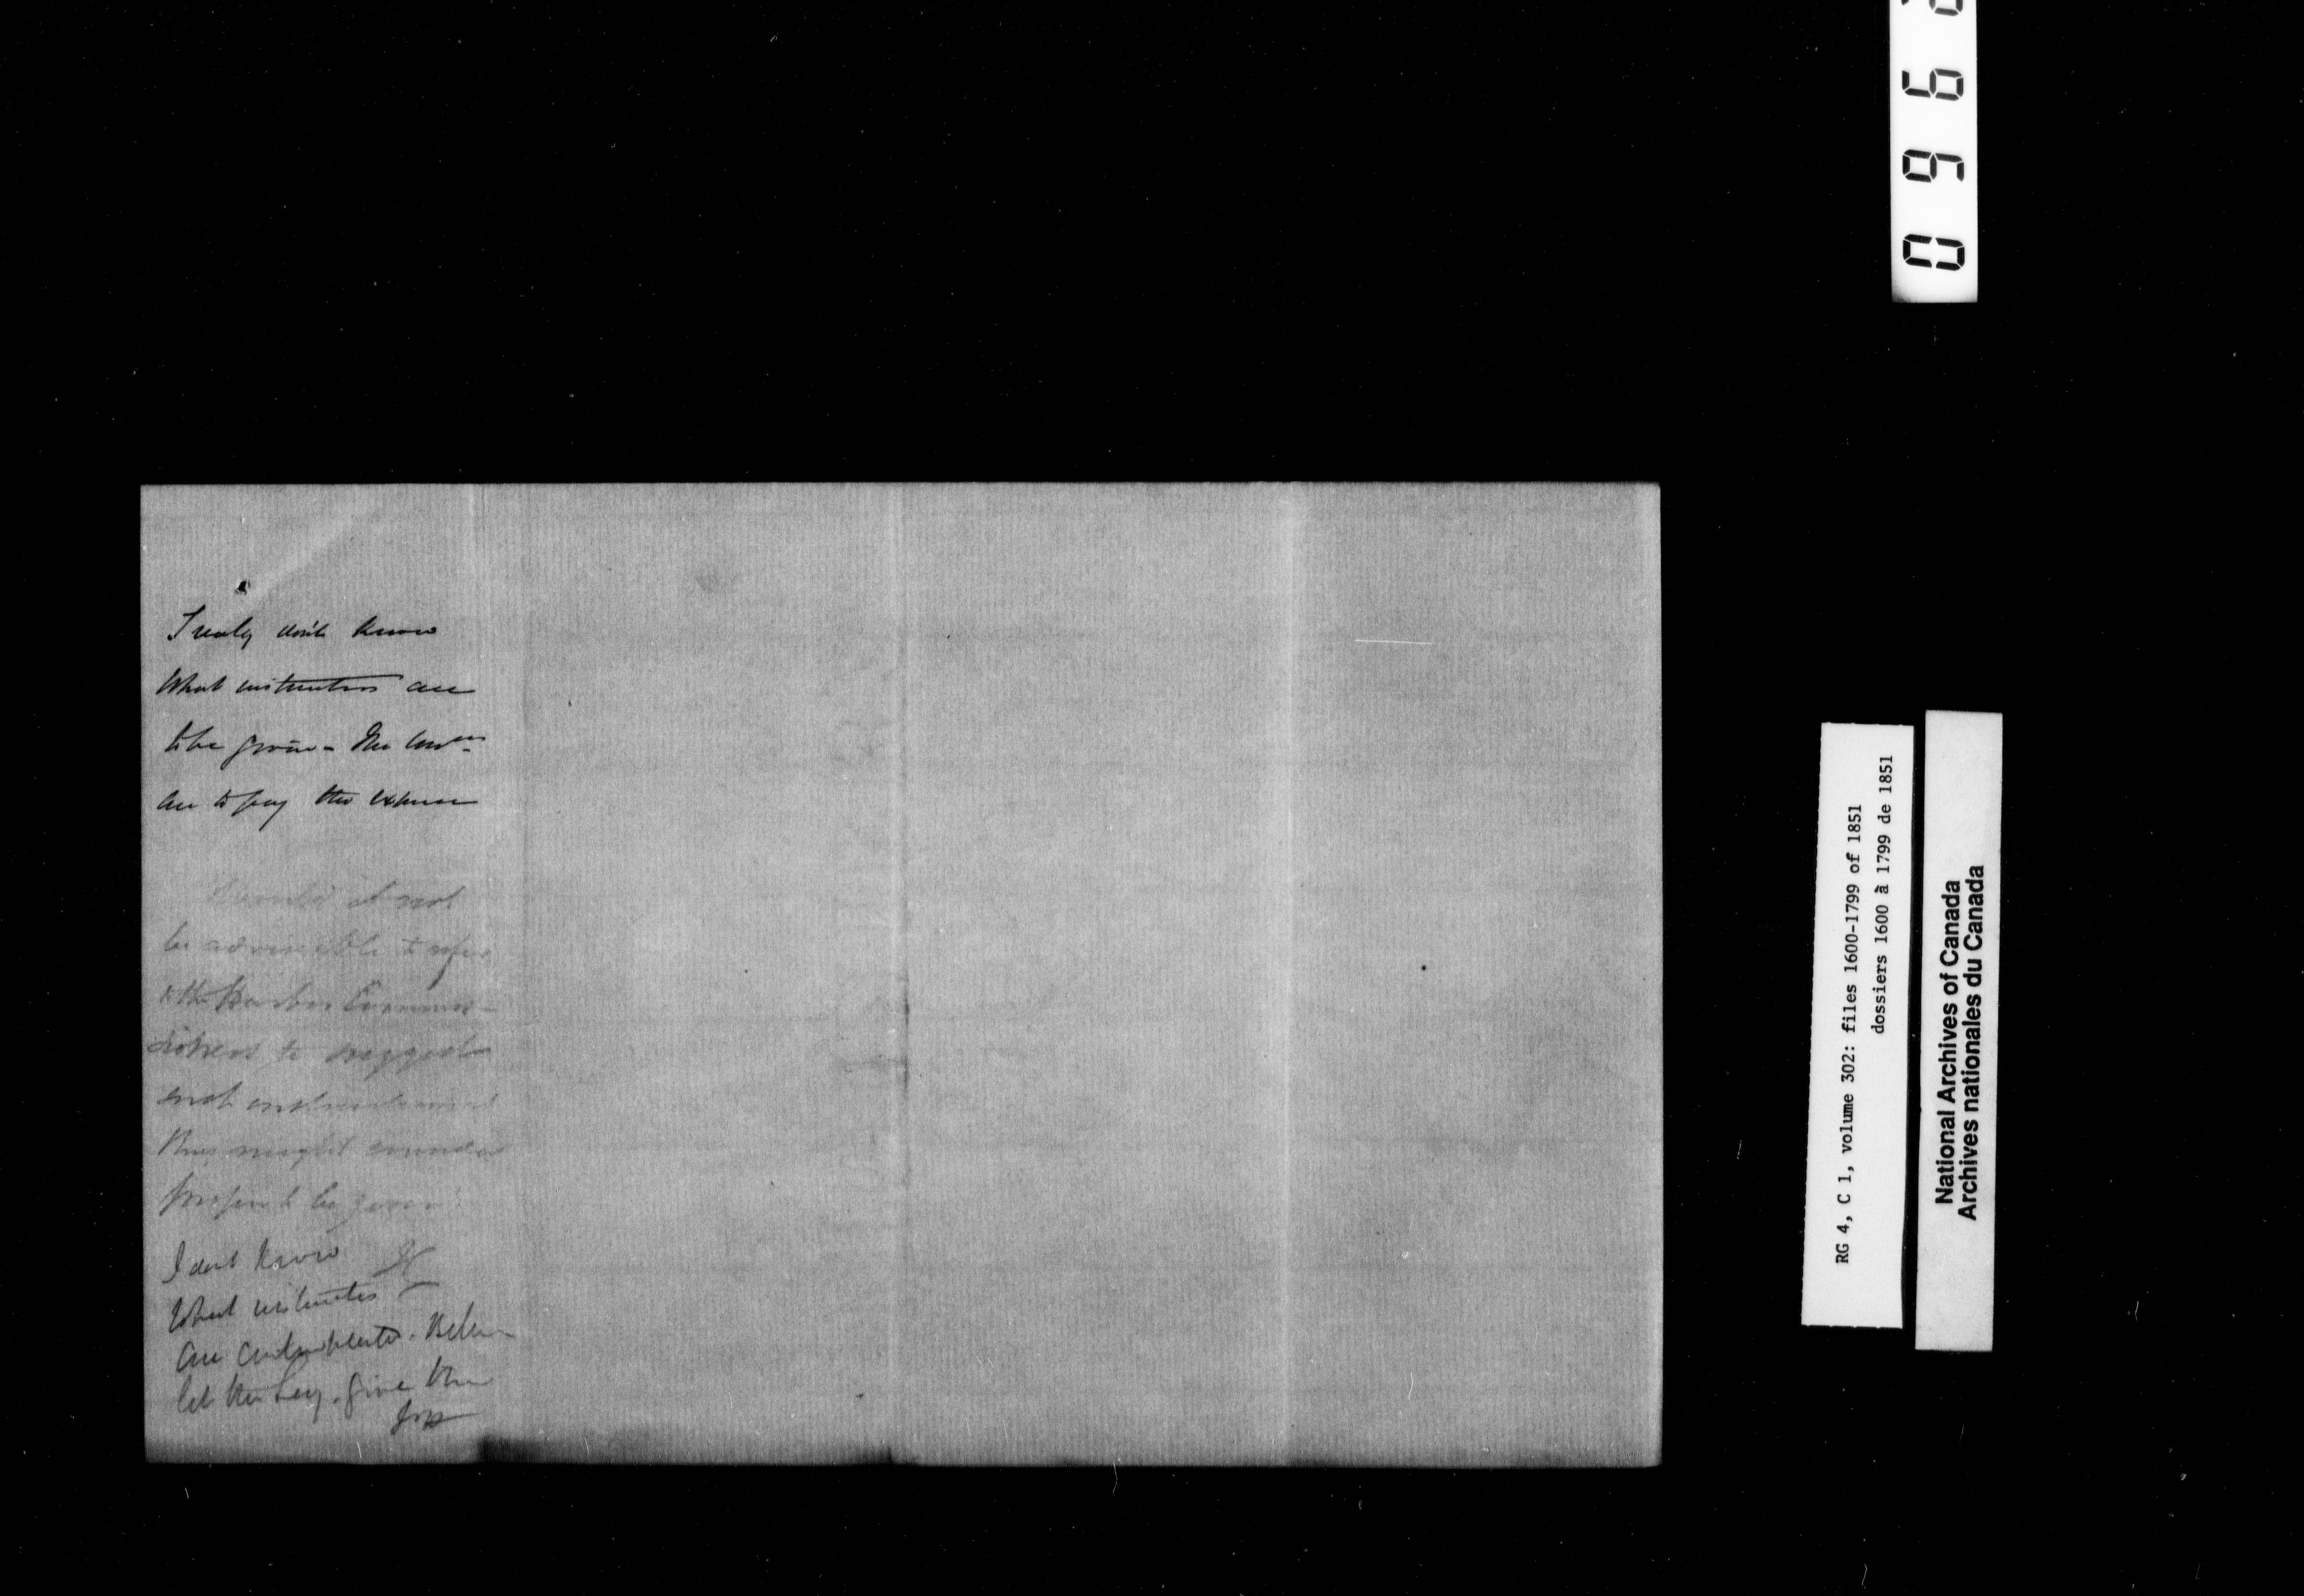 I realy don't know
What instructions are
to be given - The Com<sup>ers</sup>
are to pay the expense
Would it not
be advisable to refer
to the Harbor Commis-
sioners to suggest
such instructions as
they might consider
proper to be given
I dont know
What instructions
are contemplated.
let the Secy. give them
0962
RG 4, C 1, volume 302: files 1600-1799 of 1851
dossiers 1600 à 1799 de 1851
National Archives of Canada
Archives nationales du Canada